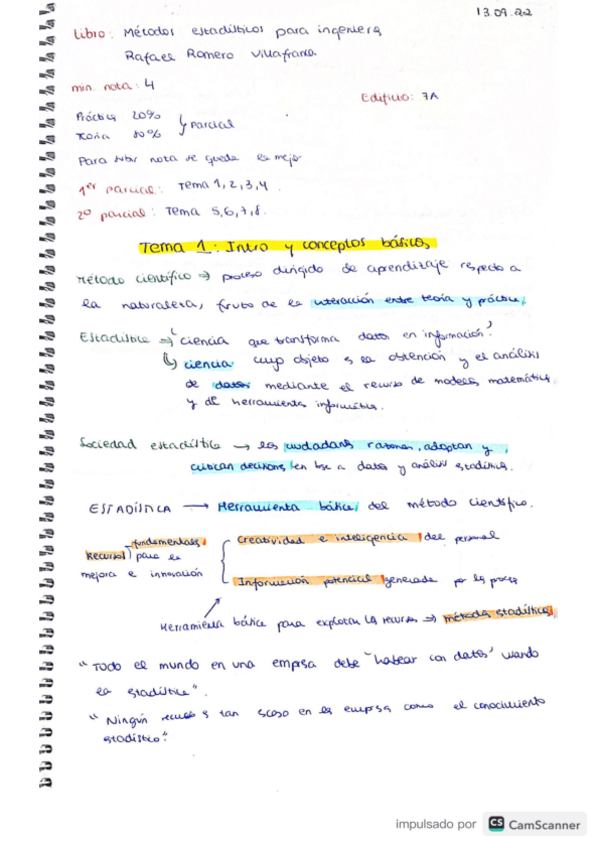 13.09.22
Libro: Métodos estadísticos para ingeniería
Rafael Romero Villafranca
min. nota: 4
Edificio: 7A
Práctica 20%
Teoría 80%
Parcial
Para subir nota se queda la mejor
1er parcial: Tema 1, 2, 3, 4.
2o parcial: Tema 5, 6, 7, 8.
Tema 1: Intro y conceptos básicos
Método científico ⇒ proceso dirigido de aprendizaje respecto a
la naturaleza, fruto de la interacción entre teoría y práctica.
Estadística ⇒ "ciencia que transforma datos en información".
ciencia cuyo objeto es la obtención y el análisis
de datos mediante el recurso de modelos matemáticos
y de herramientas informática.
Sociedad estadística → los ciudadanos razonan, adoptan y
critican decisiones en base a datos y análisis estadísticos.
ESTADÍSTICA → Herramienta básica del método científico.
Recursos fundamentales para la
mejora e innovación
Creatividad e inteligencia del personal
Información potencial generada por los procesos
Herramienta básica para explotar los recursos ⇒ métodos estadísticos
"Todo el mundo en una empresa debe "hablar con datos" usando
la estadística".
"Ningún recurso es tan escaso en las empresas como el conocimiento
estadístico".
impulsado por CS CamScanner